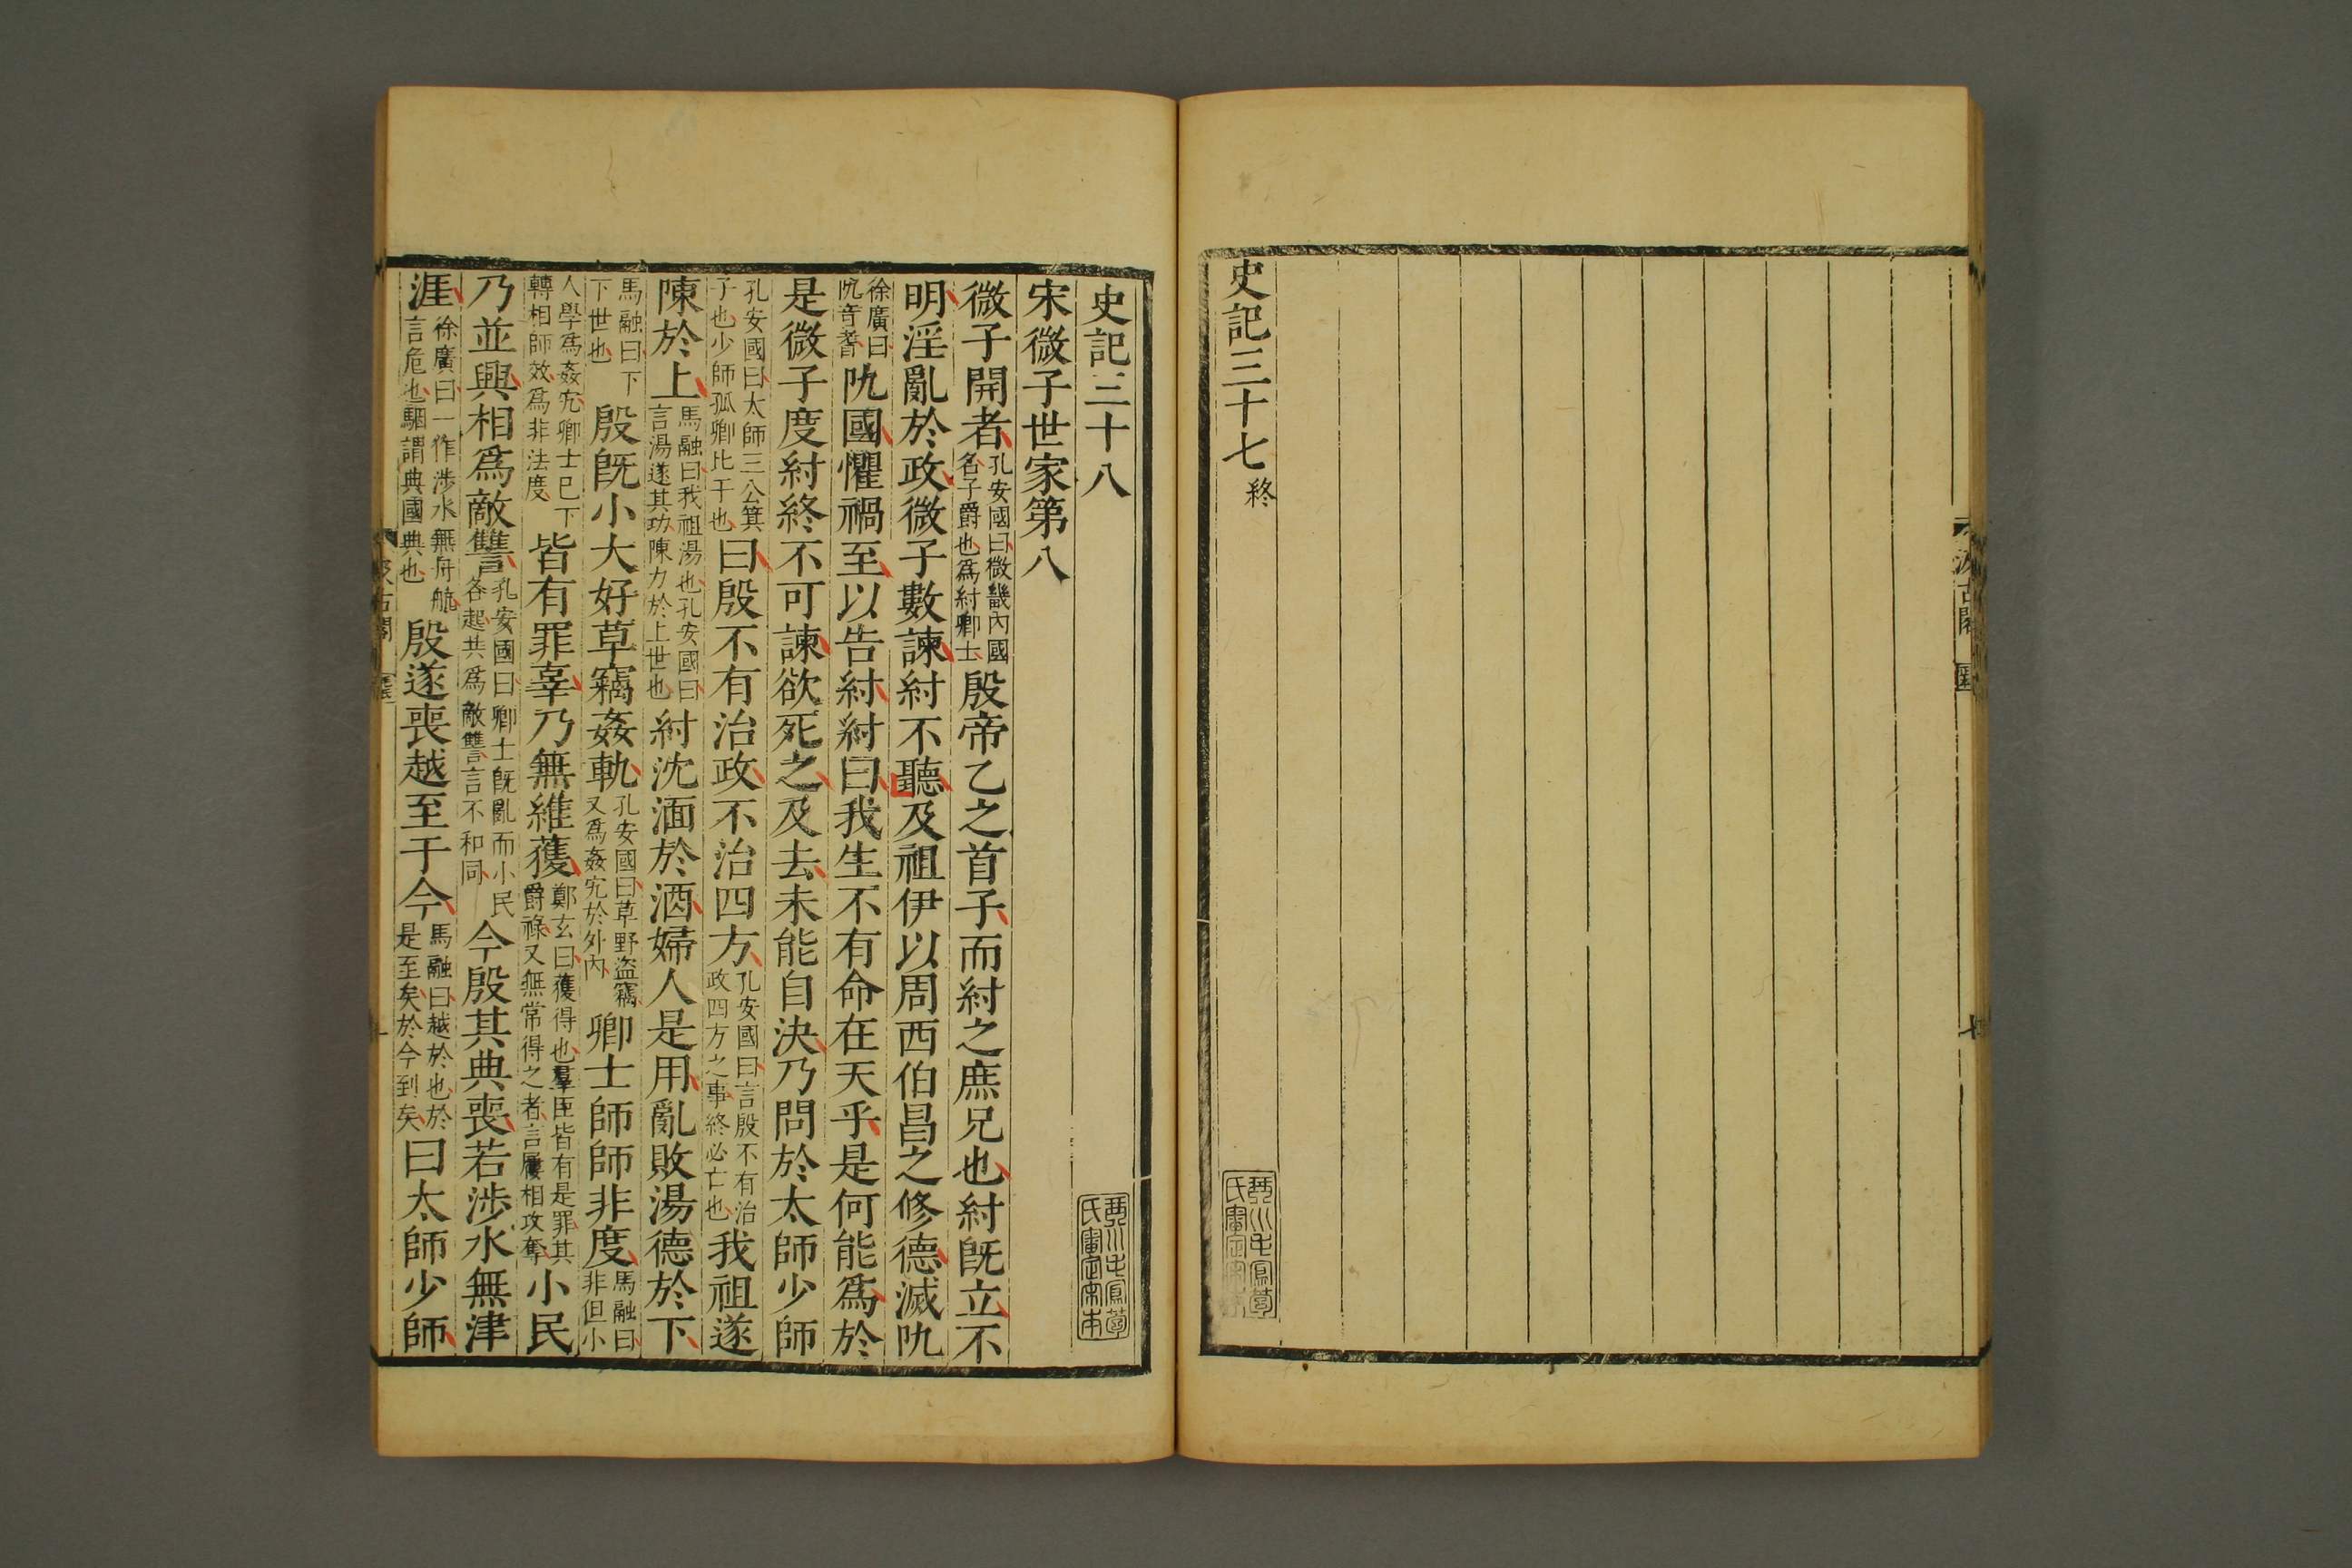 史記三十七終
汲古閣
史記三十八
宋微子世家第八
微子開者孔安國曰微畿內國名子爵也爲紂卿士殷帝乙之首子而紂之庶兄也紂旣立不
明淫亂於政微子數諫紂不聽及祖伊以周西伯昌之修德滅阢
徐廣曰阢音耆阢國懼禍至以告紂紂曰我生不有命在天乎是何能爲於
是微子度紂終不可諫欲死之及去未能自決乃問於太師少師
孔安國曰太師三公箕子也少師孤卿比干也曰殷不有治政不治四方孔安國曰言殷不有治政四方之事終必亡也我祖遂
陳於上馬融曰我祖湯也孔安國曰言湯遂其功陳力於上世也紂沈湎於酒婦人是用亂敗湯德於下
馬融曰下下世也殷旣小大好草竊姦軌孔安國曰草野盜竊又爲姦宄於外內卿士師師非度馬融曰非但小
人學爲姦宄卿士已下轉相師效爲非法度皆有罪辜乃無維獲鄭玄曰獲得也羣臣皆有是罪其爵祿又無常得之者言屢相攻奪小民
乃並興相爲敵讐孔安國曰卿士旣亂而小民各起共爲敵讐言不和同今殷其典喪若涉水無津
涯徐廣曰一作涉水無舟航言危也駰謂典國典也殷遂喪越至于今馬融曰越於也於是至矣於今到矣曰太師少師